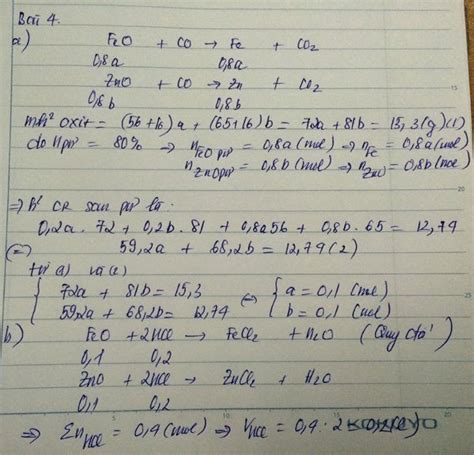 Bài 4.
a) FeO + CO → Fe + CO2
0,8a 0,8a
ZnO + CO → Zn + CO2
0,8b 0,8b
mh² oxit = (56+16)a + (65+16)b = 72a + 81b = 15,3(g)(1)
do Hpư = 80% ⇒ nFeO pư = 0,8a(mol) ⇒ nFe = 0,8a(mol)
nZnO pư = 0,8b(mol) ⇒ nZn = 0,8b(mol)
⇒ h² CR sau pư là:
0,2a.72 + 0,2b.81 + 0,8a56 + 0,8b.65 = 12,74
(=) 59,2a + 68,2b = 12,74 (2)
từ (1) và (2)
{ 72a + 81b = 15,3 (=) { a = 0,1 (mol)
59,2a + 68,2b = 12,74 b = 0,1 (mol)
b) FeO + 2HCl → FeCl2 + H2O (Quy đổi)
0,1 0,2
ZnO + 2HCl → ZnCl2 + H2O
0,1 0,2
⇒ ΣnHCl = 0,4(mol) ⇒ VHCl = 0,4.2
KOKUYO